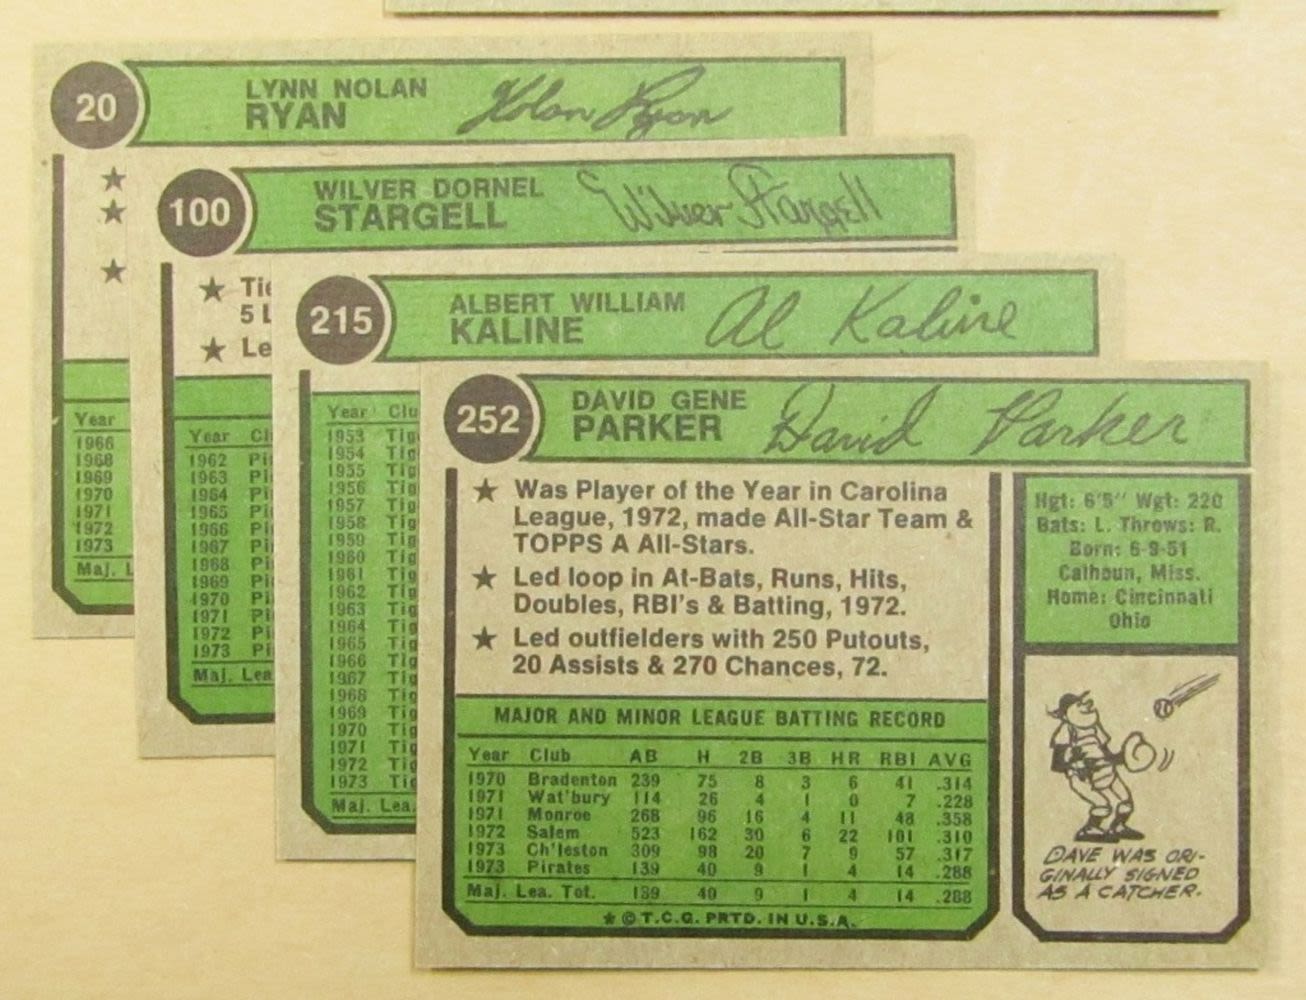 20
LYNN NOLAN
RYAN
Nolan Ryan
Year
1966
1968
1969
1970
1971
1972
1973
Maj. L
100
WILVER DORNEL
STARGELL
Wilver Stargell
★ Tie
5 L
★ Le
Year Cl
1962 Pi
1963 Pi
1964 Pi
1965 Pi
1966 Pi
1967 Pi
1968 Pi
1969 Pi
1970 Pi
1971 Pi
1972 Pi
1973 Pi
Maj. Lea
215
ALBERT WILLIAM
KALINE
Al Kaline
Year Clu
1953 Tig
1954 Tig
1955 Tig
1956 Tig
1957 Tig
1958 Tig
1959 Tig
1960 Tig
1961 Tig
1962 Tig
1963 Tig
1964 Tig
1965 Tig
1966 Tig
1967 Tig
1968 Tig
1969 Tig
1970 Tig
1971 Tig
1972 Tig
1973 Tig
Maj. Lea.
252
DAVID GENE
PARKER
David Parker
★ Was Player of the Year in Carolina
League, 1972, made All-Star Team &
TOPPS A All-Stars.
★ Led loop in At-Bats, Runs, Hits,
Doubles, RBI's & Batting, 1972.
★ Led outfielders with 250 Putouts,
20 Assists & 270 Chances, 72.
Hgt: 6'5" Wgt: 220
Bats: L. Throws: R.
Born: 6-9-51
Calhoun, Miss.
Home: Cincinnati
Ohio
MAJOR AND MINOR LEAGUE BATTING RECORD
Year Club AB H 2B 3B HR RBI AVG
1970 Bradenton 239 75 8 3 6 41 .314
1971 Wat'bury 114 26 4 1 0 7 .228
1971 Monroe 268 96 16 4 11 48 .358
1972 Salem 523 162 30 6 22 101 .310
1973 Ch'leston 309 98 20 7 9 57 .317
1973 Pirates 139 40 9 1 4 14 .288
Maj. Lea. Tot. 139 40 9 1 4 14 .288
★ © T.C.G. PRTD. IN U.S.A.
DAVE WAS ORI-
GINALLY SIGNED
AS A CATCHER.